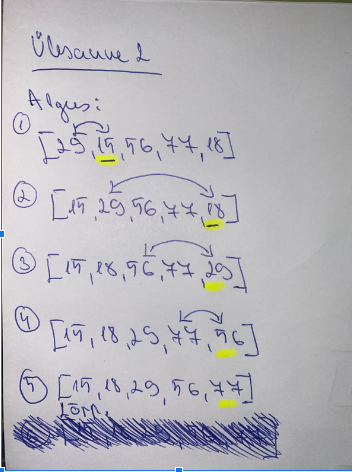 Ülesanne 2
Algus:
① [29, 15, 56, 77, 18]
② [15, 29, 56, 77, 18]
③ [15, 18, 56, 77, 29]
④ [15, 18, 29, 77, 56]
⑤ [15, 18, 29, 56, 77]
Lõpp.